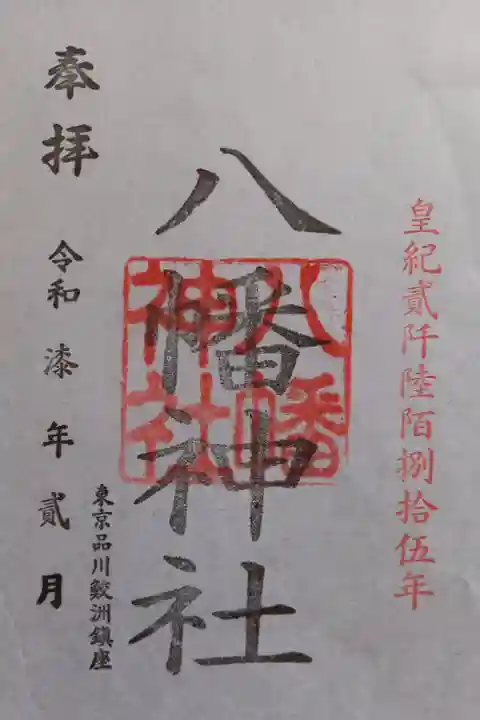 皇紀貳阡陸陌捌拾伍年
八幡神社
八幡
神社
東京品川鮫洲鎮座
奉拝
令和漆年貳月